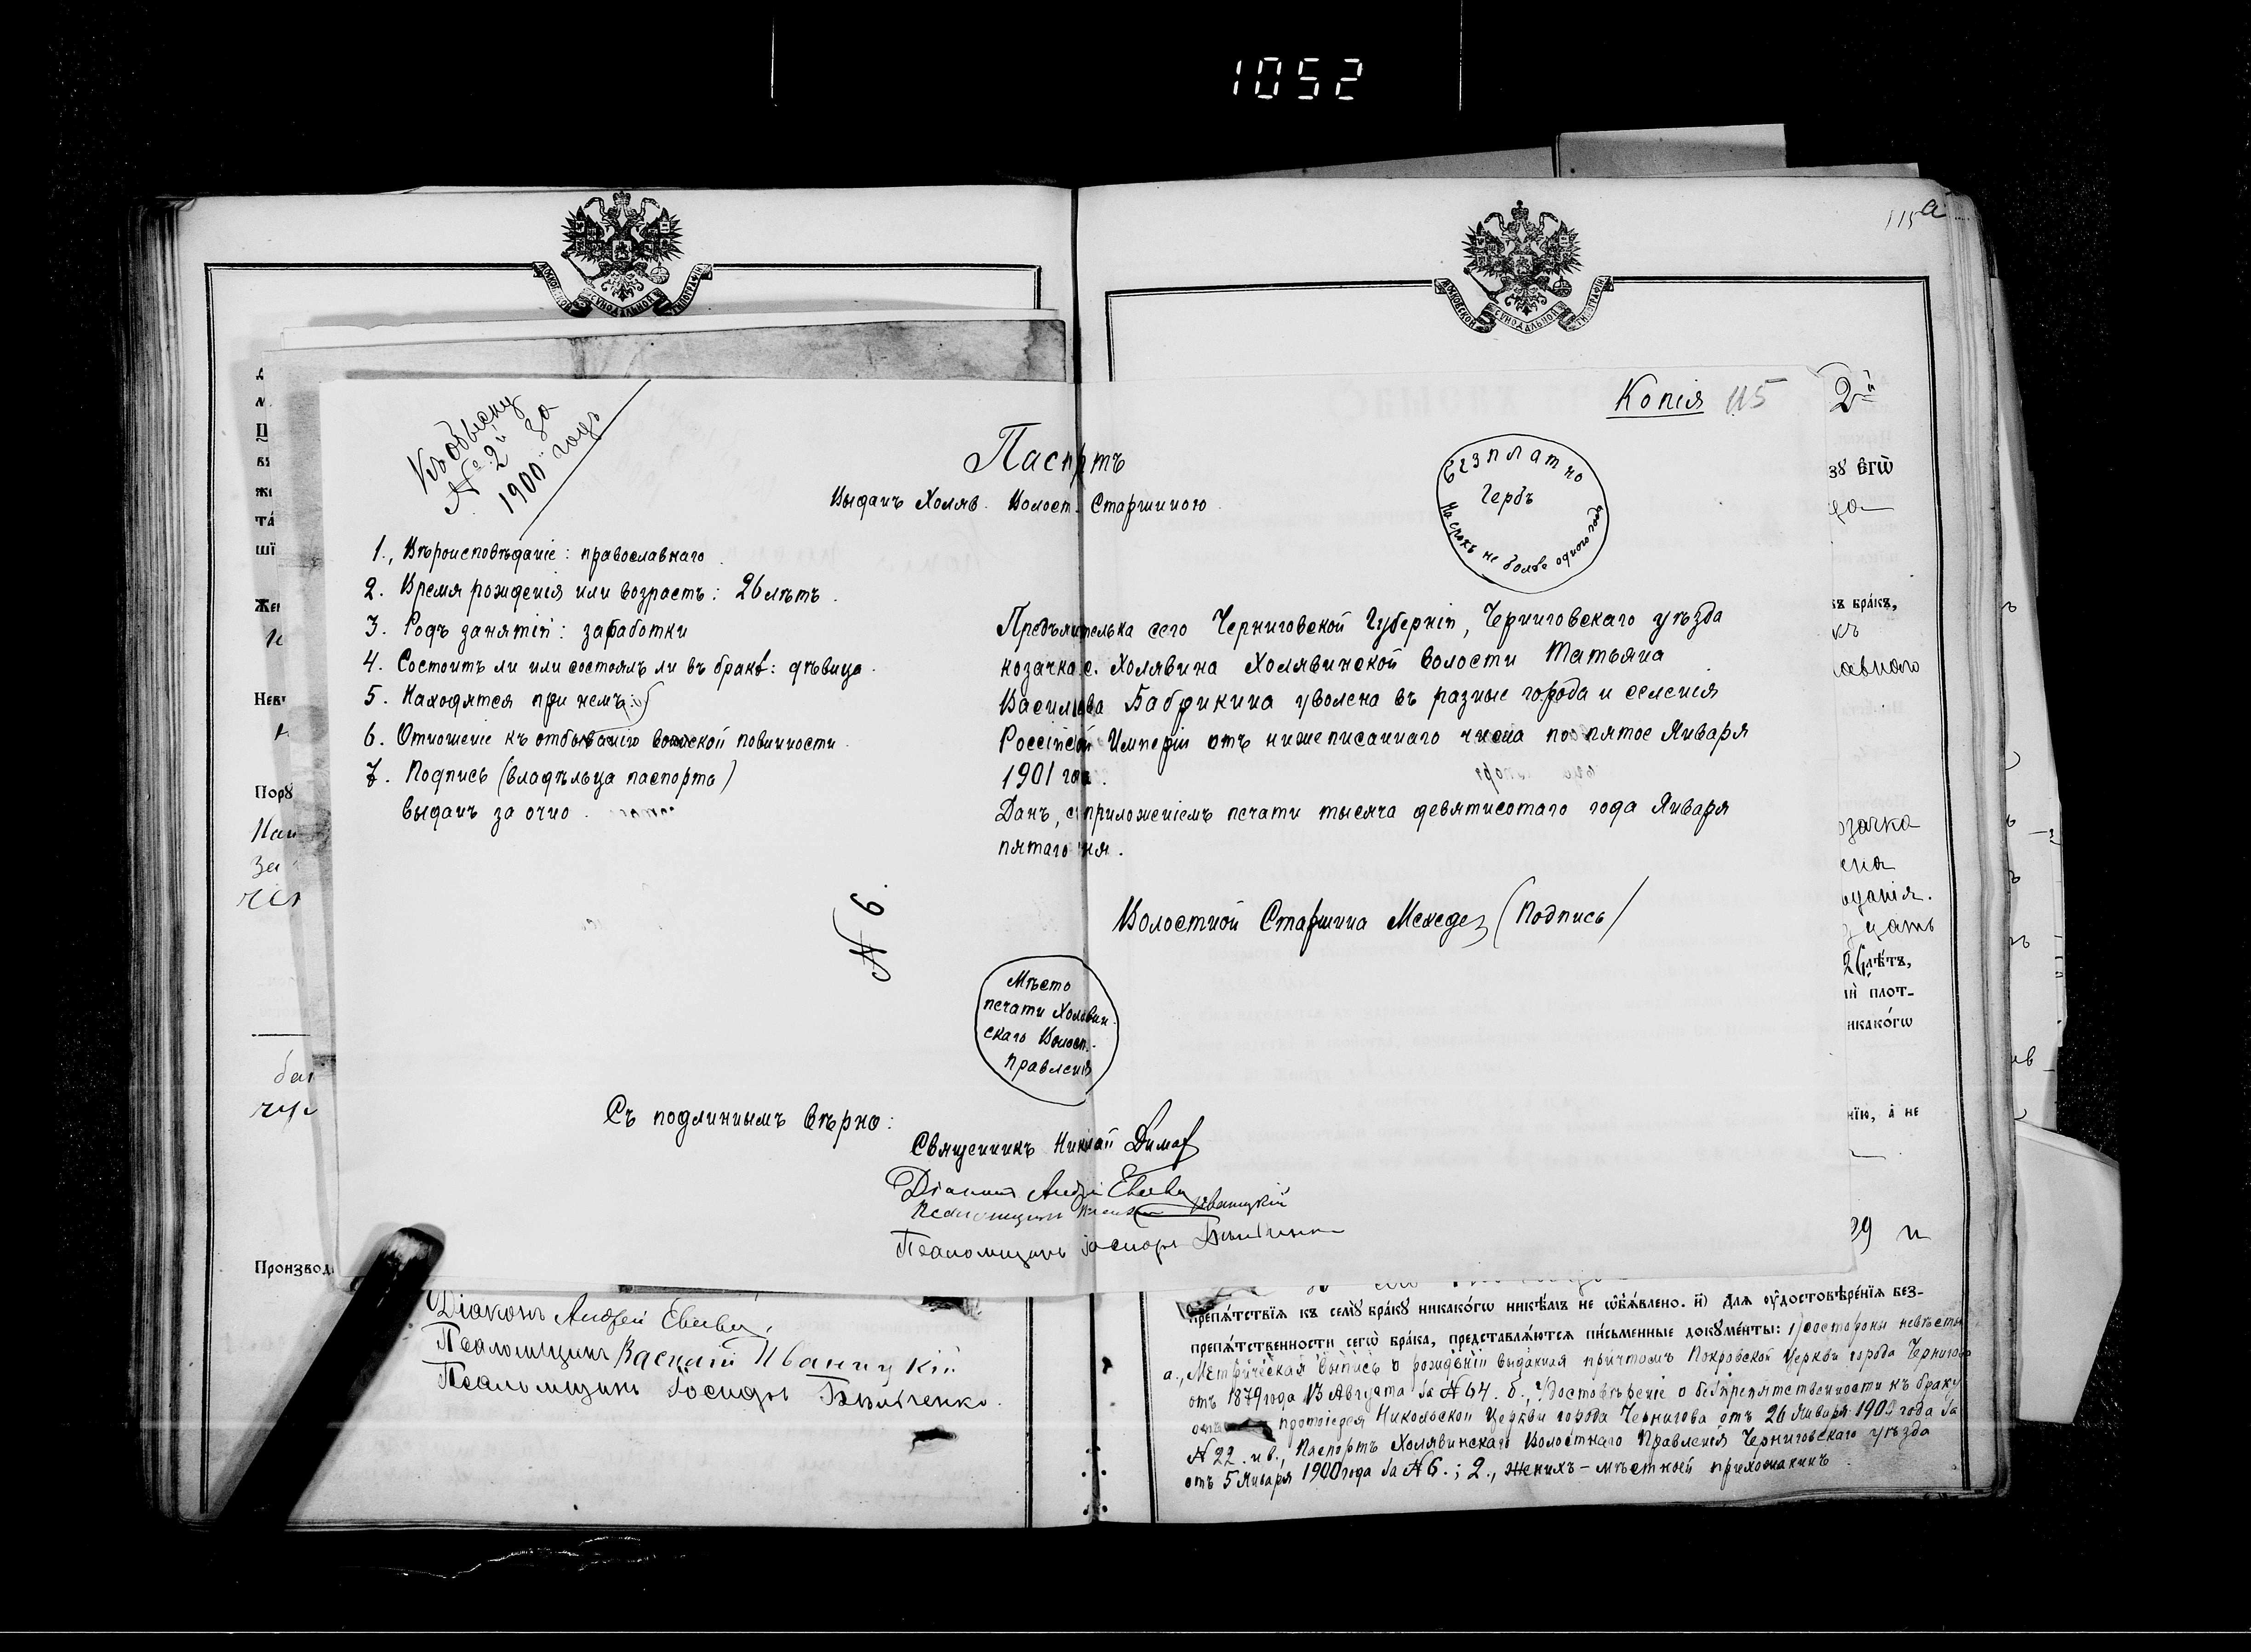 1052
115а
МОСКОВСКОЙ СѴНОДАЛЬНОЙ ТИПОГРАФІИ
МОСКОВСКОЙ СѴНОДАЛЬНОЙ ТИПОГРАФІИ
Къ обыску
№ 2й за
1900 годъ
Копія 115
2й
Паспортъ
Выданъ Холяв. Волост. Старшиною
Безплатно
Гербъ
На срокъ не более одного года
1., Вѣроисповѣданіе: православнаго
2. Время рожденія или возрастъ: 26 лѣтъ.
3. Родъ занятій: заработки
4. Состоитъ ли или состоялъ ли въ бракѣ: дѣвица.
5. Находятся при немъ:
6. Отношеніе къ отбыванію воинской повинности.
7. Подпись (владѣльца паспорта)
выданъ за очно.
Предъявителька сего Черниговской Губерніи, Черниговскаго уѣзда
козачка с. Холявина Холявинской волости Татьяна
Васильева Бабрикина уволена въ разные города и селенія
Россійской Имперіи отъ нижеписаннаго числа по пятое Января
1901 года.
Данъ, с приложеніемъ печати тысяча девятисотаго года Января
пятаго дня.
№ 6.
Волостной Старшина (Подпись)
Мѣсто
печати Холявин-
скаго Волост.
Правленія
Съ подлиннымъ вѣрно:
Священникъ Николай
Діаконъ Андрей
Псаломщикъ Василій Иваницкій
Псаломщикъ Іосифъ
зꙋ є҆гѡ̀
къ бра́къ,
козачка
26 лѣ́тъ,
плот-
никако́гѡ
нїю, а҆ не
29 и
Жен
Нев
Порꙋ
Произвол
Діаконъ Андрей
Псаломщикъ Василій Иваницкій
Псаломщикъ Іосифъ
препѧ́тствїѧ къ семꙋ̀ бра́кꙋ никако́гѡ никѣ́мъ не ѡ҆б̾ѧ́влено. и҃) Длѧ ᲂу҆достовѣре́нїѧ без-
препѧ́тственности сегѡ̀ бра́ка, представлѧ́ютсѧ пи́сьменные докꙋме́нты: 1) со стороны невѣсты
а., Метрическая выпись о рожденіи выданная причтомъ Покровской Церкви города Чернигова
отъ 1879 года 13 Августа за № 64. б., Удостовѣреніе о безпрепятственности къ браку
протоіерея Никольской Церкви города Чернигова отъ 26 Января 1900 года за
№ 22. и в., Паспортъ Холявинскаго Волостнаго Правленія Черниговскаго уѣзда
отъ 5 Января 1900 года за № 6.; 2., Женихъ – мѣстной прихожанинъ